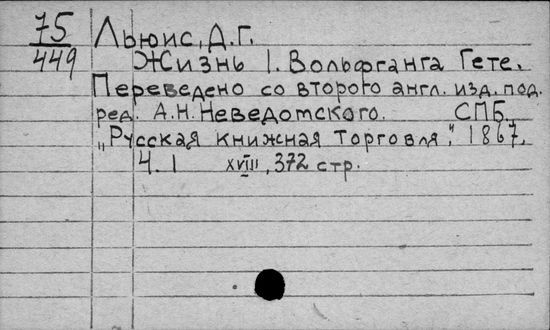 75
449
Льюис, Д.Г.
Жизнь I. Вольфганга Гете.
Переведено со второго англ. изд. под.
ред. А.Н. Неведомского. СПБ.
„Русская книжная торговля", 1867.
Ч. I XVIII, 372 стр.